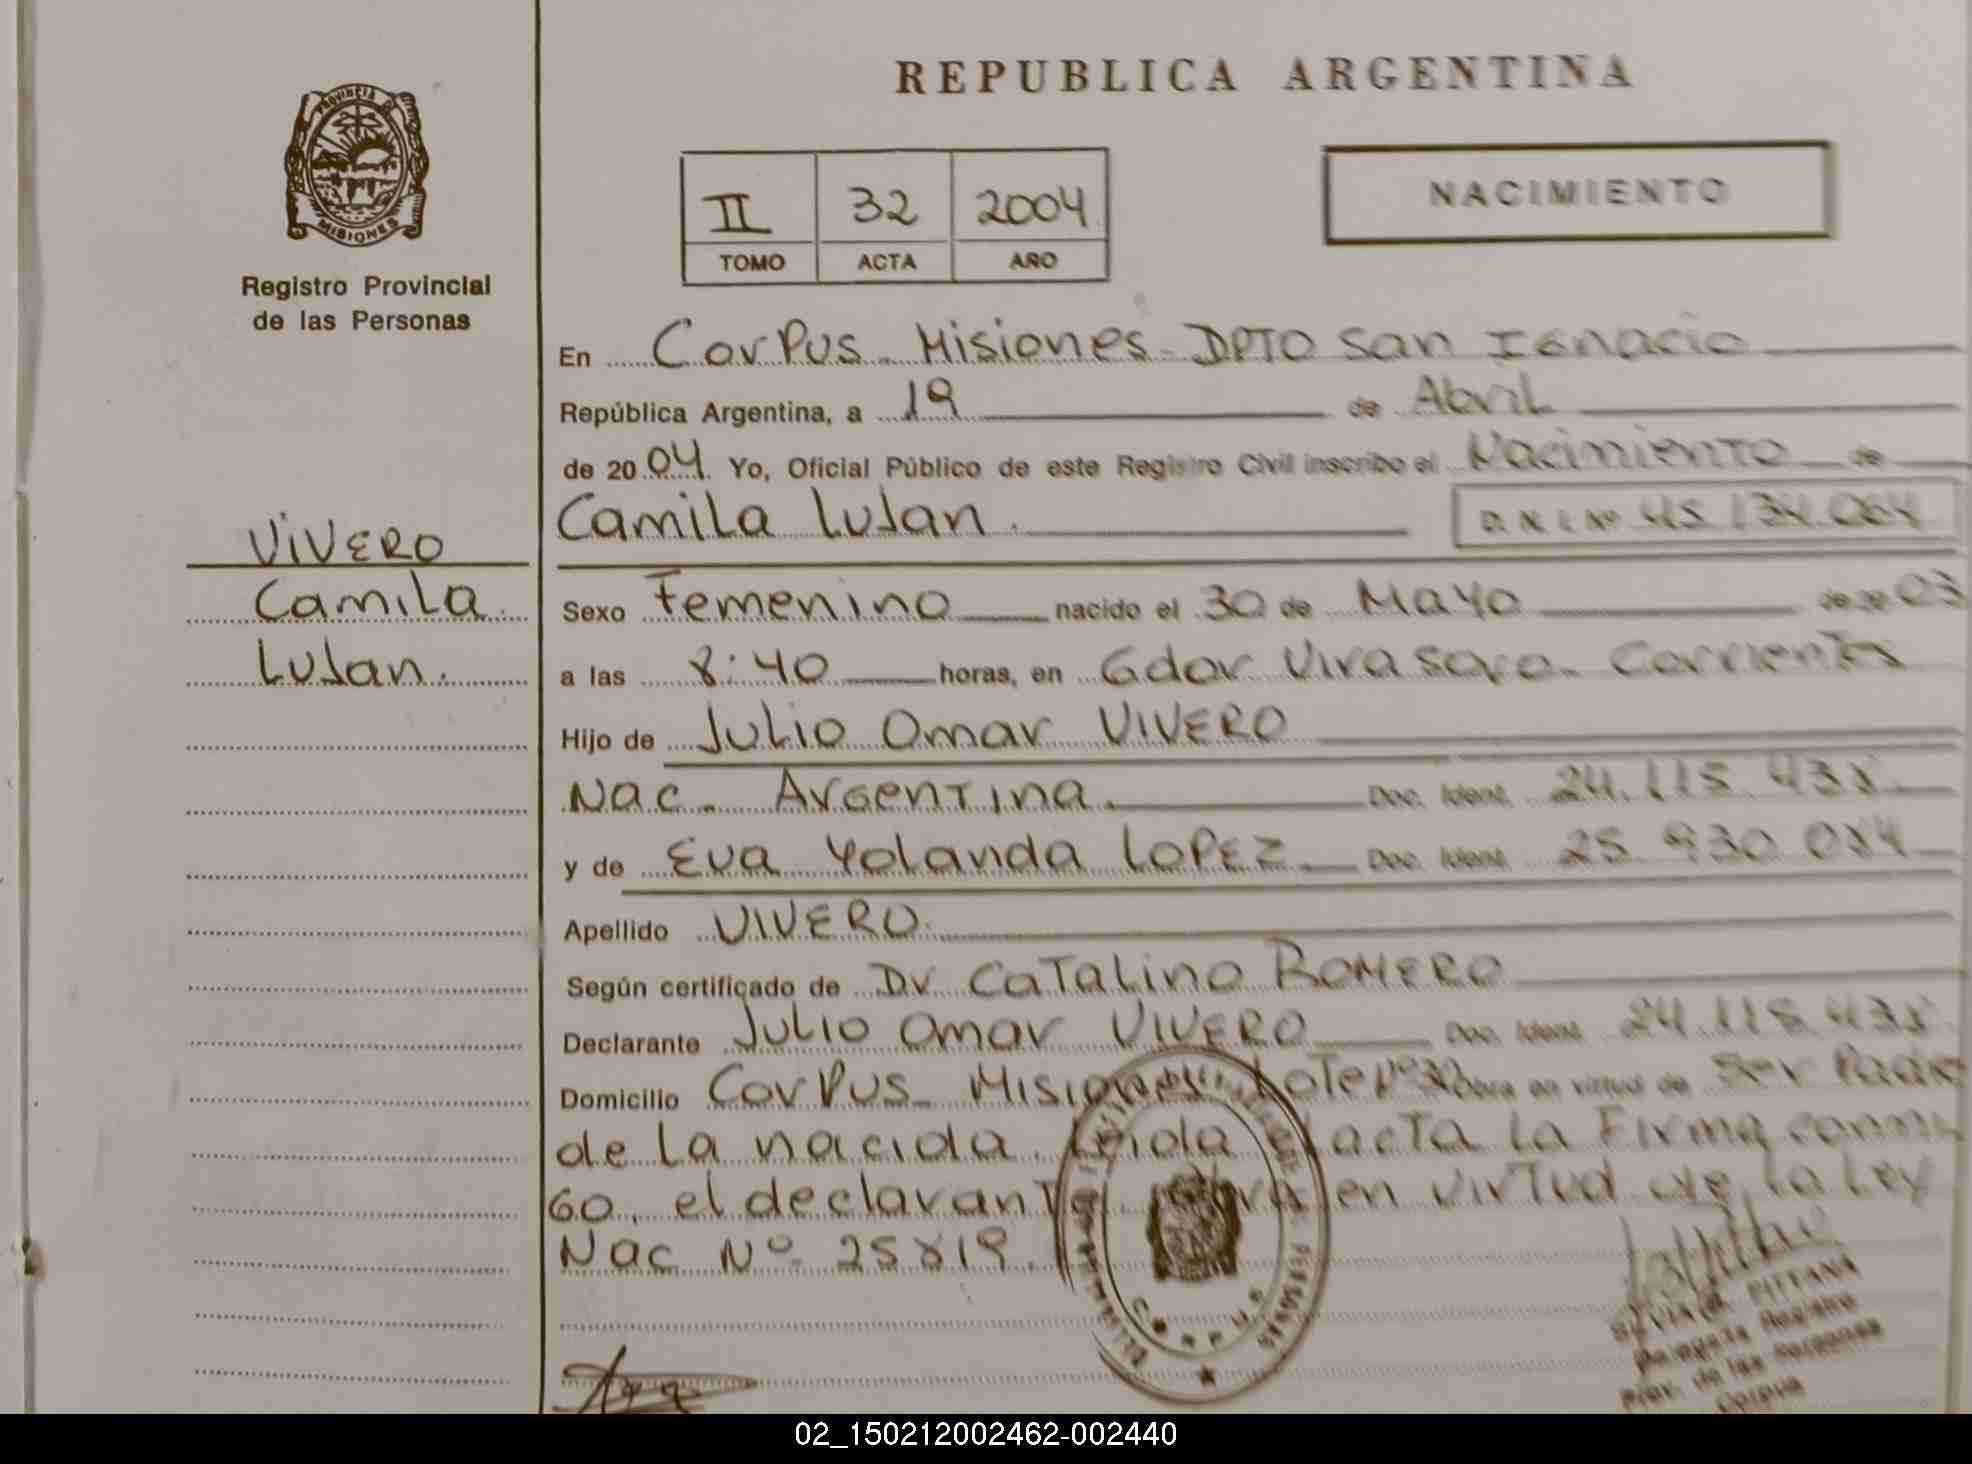 REPUBLICA ARGENTINA
PROVINCIA DE
MISIONES
Registro Provincial
de las Personas
II 32 2004
TOMO ACTA AÑO
NACIMIENTO
En Corpus Misiones - DPTO San Ignacio
República Argentina, a 19 de Abril
de 2004 Yo, Oficial Público de este Registro Civil inscribo el Nacimiento de
Camila Lujan. D.N.I. Nº 45.134.064
VIVERO
Camila
Lujan.
Sexo Femenino nacido el 30 de Mayo de 2003
a las 8:40 horas, en Gdor Virasoro - Corrientes
Hijo de Julio Omar VIVERO
Nac. Argentina. Doc. Ident. 24.115.438
y de Eva Yolanda LOPEZ Doc. Ident. 25.930.084
Apellido VIVERO.
Según certificado de Dr Catalino ROMERO
Declarante Julio Omar VIVERO Doc. Ident. 24.115.438
Domicilio Corpus - Misiones Lote Nº 32 Obra en virtud de Ser Padre
de la nacida. Leida acta la Firma conmi
go. el declarante. en virtud de la Ley
Nac Nº 25819.
CORPUS
PITTANA
Delegada Registro
Prov. de las Personas
Corpus
02_150212002462-002440